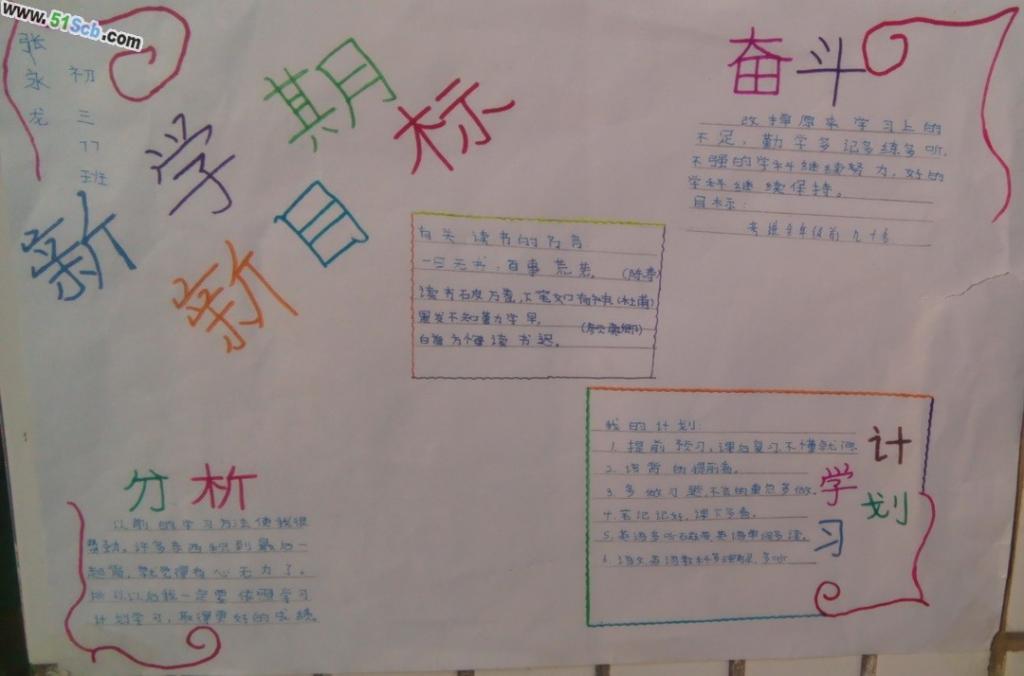 www.51Scb.com
张永龙
初三
77
班
新学期
新目标
奋斗
改掉原来学习上的
不足，勤学多记多练多听，
不强的学科继续努力，好的
学科继续保持。
目标：
考进全年级前九十名
有关读书的名言
一日无书，百事荒芜。（陈寿）
读书破万卷，下笔如有神（杜甫）
黑发不知勤学早，（颜真卿）
白首方悔读书迟。
分析
以前的学习方法使我很
费劲，许多东西积到最后一
起背，就觉得有心无力了。
所以以后我一定要依照学习
计划学习，取得更好的成绩。
学习计划
我的计划：
1. 提前预习，课后复习，不懂就问
2. 该背的提前背。
3. 多做习题，不会的重复多做。
4. 笔记记好，课下多看。
5. 英语多听磁带，英语单词多读。
6. 语文英语教科多